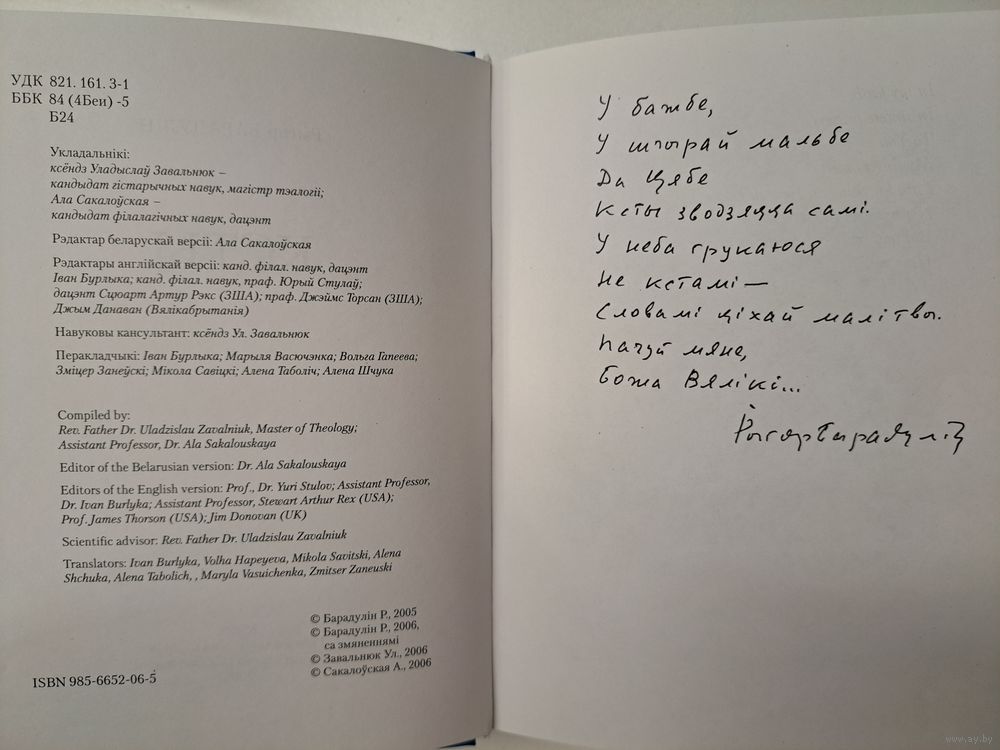 УДК 821. 161. 3-1
ББК 84 (4Беи) -5
Б24
Укладальнікі:
ксёндз Уладыслаў Завальнюк –
кандыдат гістарычных навук, магістр тэалогіі;
Ала Сакалоўская –
кандыдат філалагічных навук, дацэнт
Рэдактар беларускай версіі: Ала Сакалоўская
Рэдактары англійскай версіі: канд. філал. навук, дацэнт
Іван Бурлыка; канд. філал. навук, праф. Юрый Стулаў;
дацэнт Сцюарт Артур Рэкс (ЗША); праф. Джэймс Торсан (ЗША);
Джым Данаван (Вялікабрытанія)
Навуковы кансультант: ксёндз Ул. Завальнюк
Перакладчыкі: Іван Бурлыка; Марыля Васючэнка, Вольга Гапеева;
Зміцер Занеўскі; Мікола Савіцкі; Алена Таболіч; Алена Шчука
Compiled by:
Rev. Father Dr. Uladzislau Zavalniuk, Master of Theology;
Assistant Professor, Dr. Ala Sakalouskaya
Editor of the Belarusian version: Dr. Ala Sakalouskaya
Editors of the English version: Prof., Dr. Yuri Stulov; Assistant Professor,
Dr. Ivan Burlyka; Assistant Professor, Stewart Arthur Rex (USA);
Prof. James Thorson (USA); Jim Donovan (UK)
Scientific advisor: Rev. Father Dr. Uladzislau Zavalniuk
Translators: Ivan Burlyka, Volha Hapeyeva, Mikola Savitski, Alena
Shchuka, Alena Tabolich, , Maryla Vasuichenka, Zmitser Zaneuski
© Барадулін Р., 2005
© Барадулін Р., 2006,
са змяненнямі
© Завальнюк Ул., 2006
© Сакалоўская А., 2006
ISBN 985-6652-06-5
У бажбе,
У шчырай мальбе
Да Цябе
Ксты зводзяцца самі.
У неба грукаюся
Не кстамі —
Словамі ціхай малітвы.
Пачуй мяне,
Божа Вялікі...
Рыгор Барадулін
www.ay.by